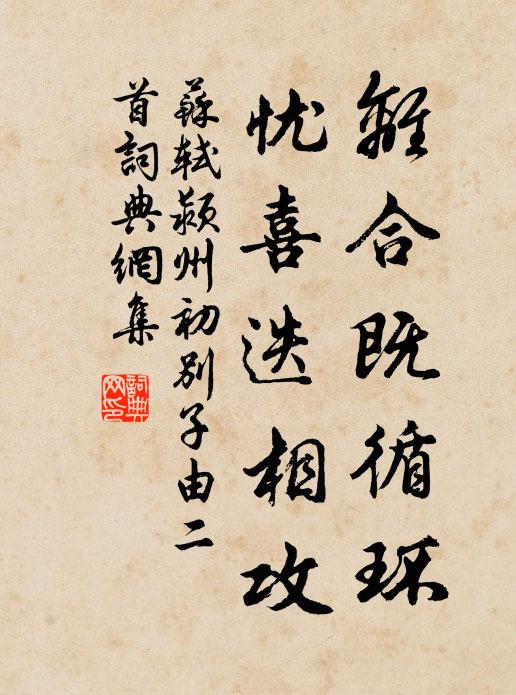 離合既循环
忧喜迭相攻
蘇軾颍州初别子由二
首詞典網集
詞典网印